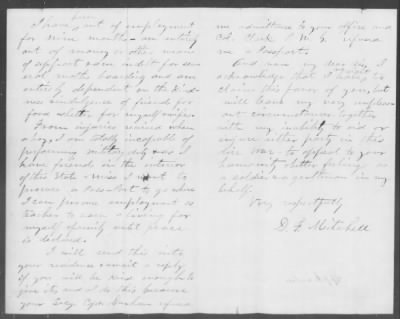 been
I have, out of employment
for nine months am entirely
out of money or other means
of support & am in debt for sev-
eral months boarding and am
entirely dependent on the kind-
ness & indulgence of friend for
food & shelter for myself & wife.
From injuries received when
a boy I am totally incapable of
performing military duty. As I
have friends in the interior
of this State & Miss I want to
procure a Passport to go where
I can procure employment as
teacher to earn a living for
myself & family until peace
is declared.
I will send this into
your residence & await a reply
if you will be kind enough to
give it; and I do this because
your Secy Capt refused
me admittance to your office and
Col. Clark P.M.G. refused
me a Passport.
And now my dear sir, I
acknowledge that I have no right to
claim this favor of you, but
will leave my very unpleas-
ant circumstances together
with my inability to aid or
injure either party in this
war to appeal to your
humanity & better feelings as
a soldier and gentleman in my
behalf.
Very respectfully
D. F. Mitchell